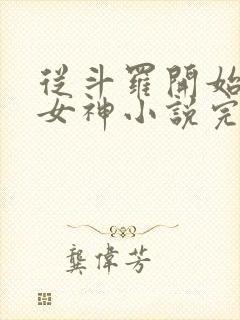 從斗羅開始
女神小說完
龔偉芳